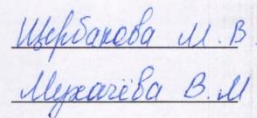 Щербакова М.В.
Мухачёва В.М